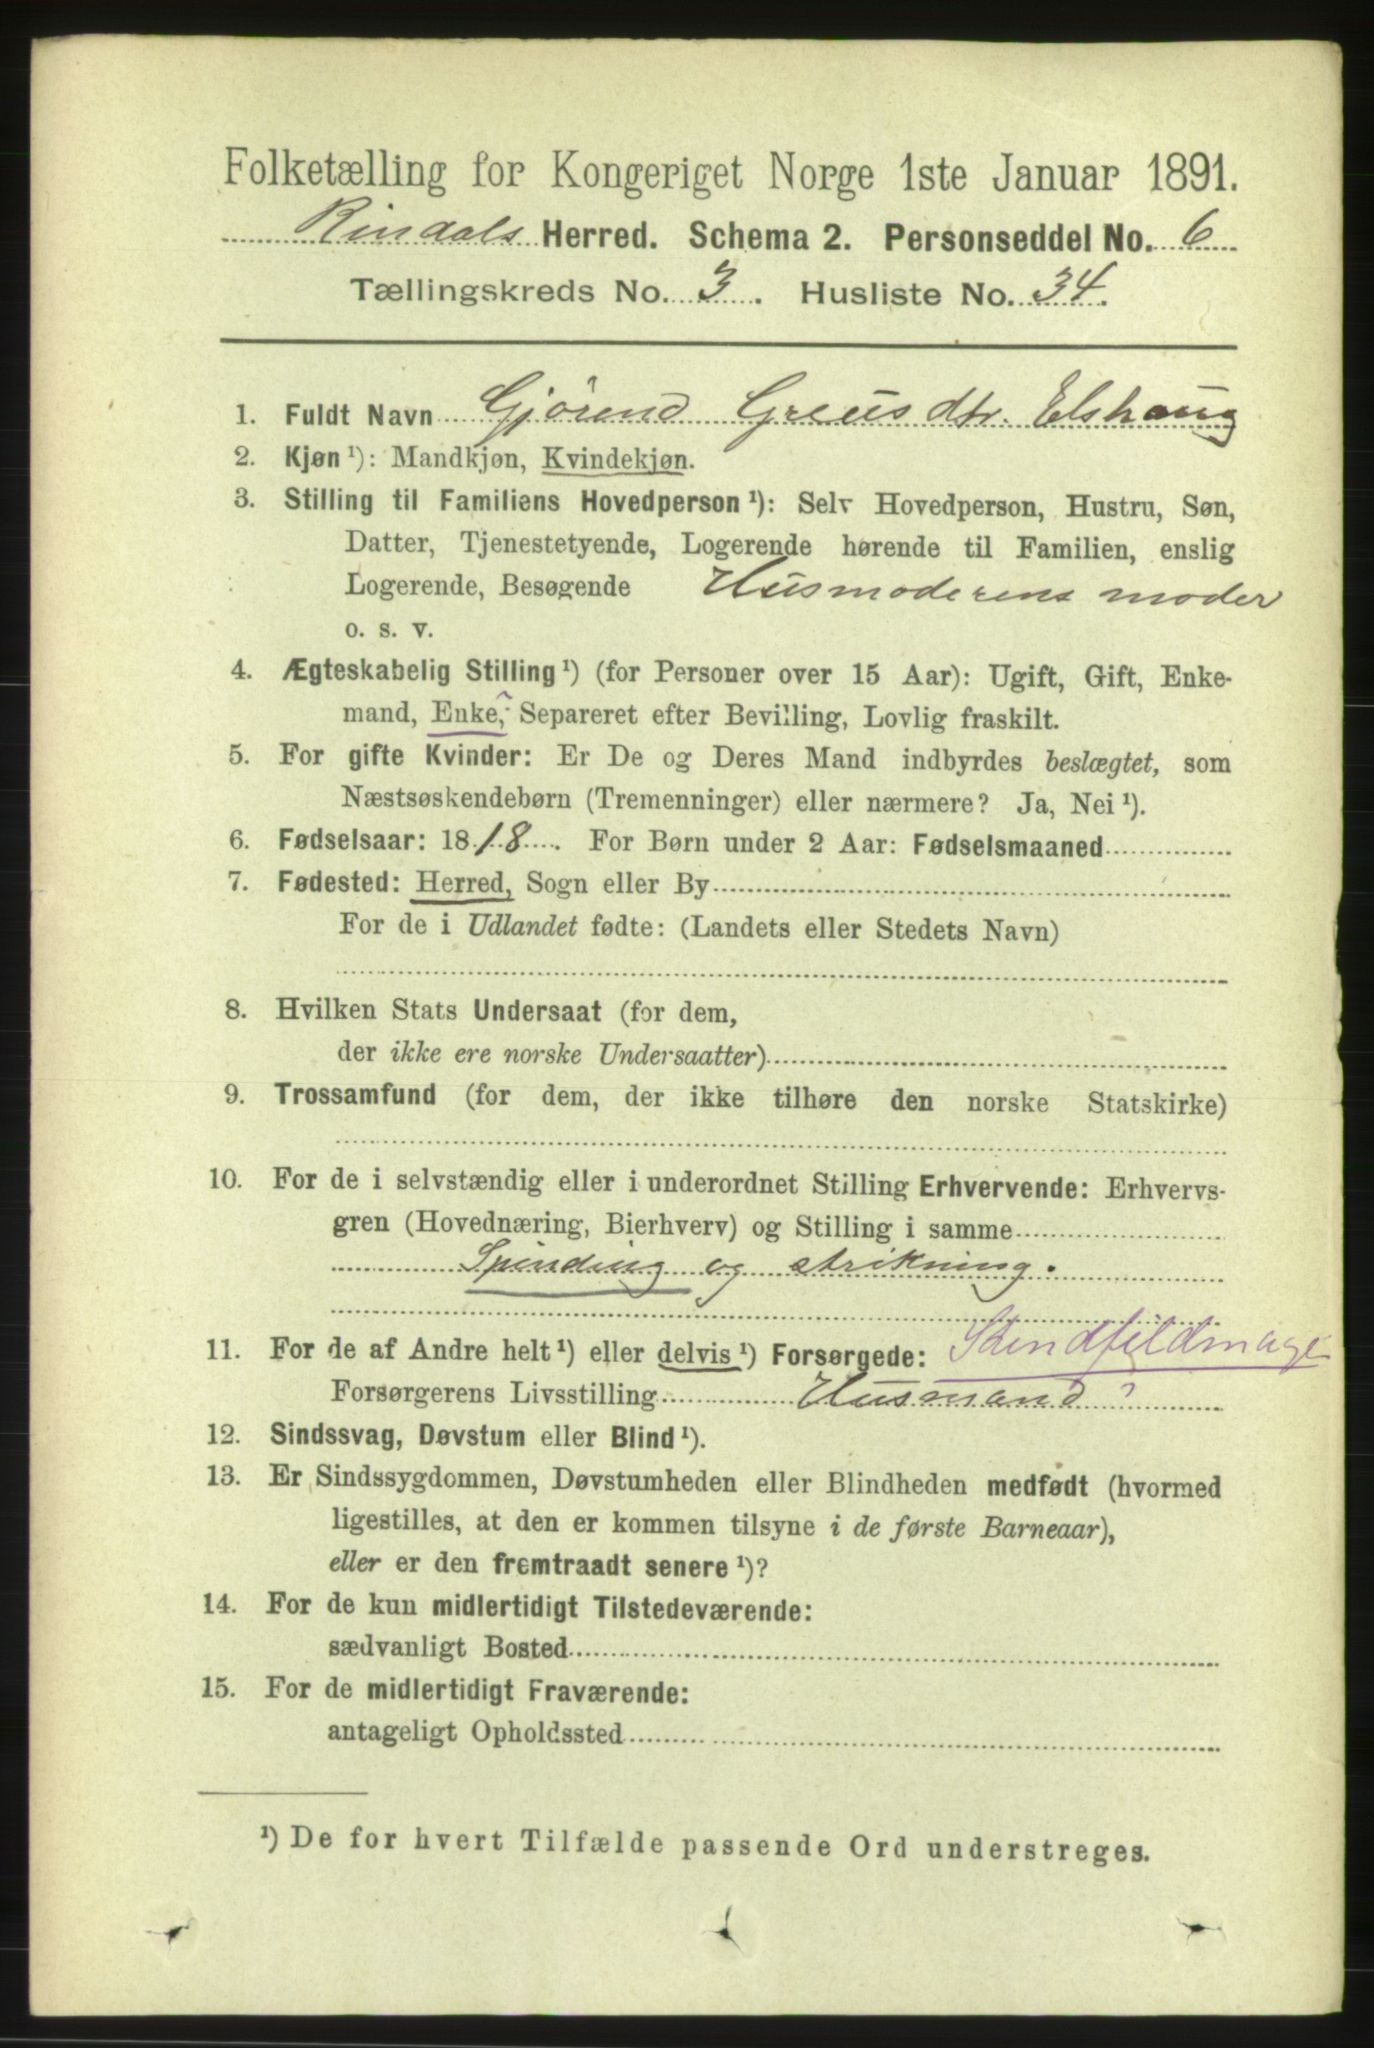 Folketælling for Kongeriget Norge 1ste Januar 1891.
Rindals Herred. Schema 2. Personseddel No. 6
Tællingskreds No. 3. Husliste No. 34.
1. Fuldt Navn Gjørend Greusdtr. Elshaug
2. Kjøn ¹): Mandkjøn, Kvindekjøn.
3. Stilling til Familiens Hovedperson ¹): Selv Hovedperson, Hustru, Søn,
Datter, Tjenestetyende, Logerende hørende til Familien, enslig
Logerende, Besøgende Husmoderens moder
o. s. v.
4. Ægteskabelig Stilling ¹) (for Personer over 15 Aar): Ugift, Gift, Enke-
mand, Enke, Separeret efter Bevilling, Lovlig fraskilt.
5. For gifte Kvinder: Er De og Deres Mand indbyrdes beslægtet, som
Næstsøskendebørn (Tremenninger) eller nærmere? Ja, Nei ¹).
6. Fødselsaar: 1818. For Børn under 2 Aar: Fødselsmaaned
7. Fødested: Herred, Sogn eller By
For de i Udlandet fødte: (Landets eller Stedets Navn)
8. Hvilken Stats Undersaat (for dem,
der ikke ere norske Undersaatter)
9. Trossamfund (for dem, der ikke tilhøre den norske Statskirke)
10. For de i selvstændig eller i underordnet Stilling Erhvervende: Erhvervs-
gren (Hovednæring, Bierhverv) og Stilling i samme
Spinding og strikning.
11. For de af Andre helt ¹) eller delvis ¹) Forsørgede: Skindfeldmager
Forsørgerens Livsstilling Husmand ?
12. Sindssvag, Døvstum eller Blind ¹).
13. Er Sindssygdommen, Døvstumheden eller Blindheden medfødt (hvormed
ligestilles, at den er kommen tilsyne i de første Barneaar),
eller er den fremtraadt senere ¹)?
14. For de kun midlertidigt Tilstedeværende:
sædvanligt Bosted
15. For de midlertidigt Fraværende:
antageligt Opholdssted
¹) De for hvert Tilfælde passende Ord understreges.